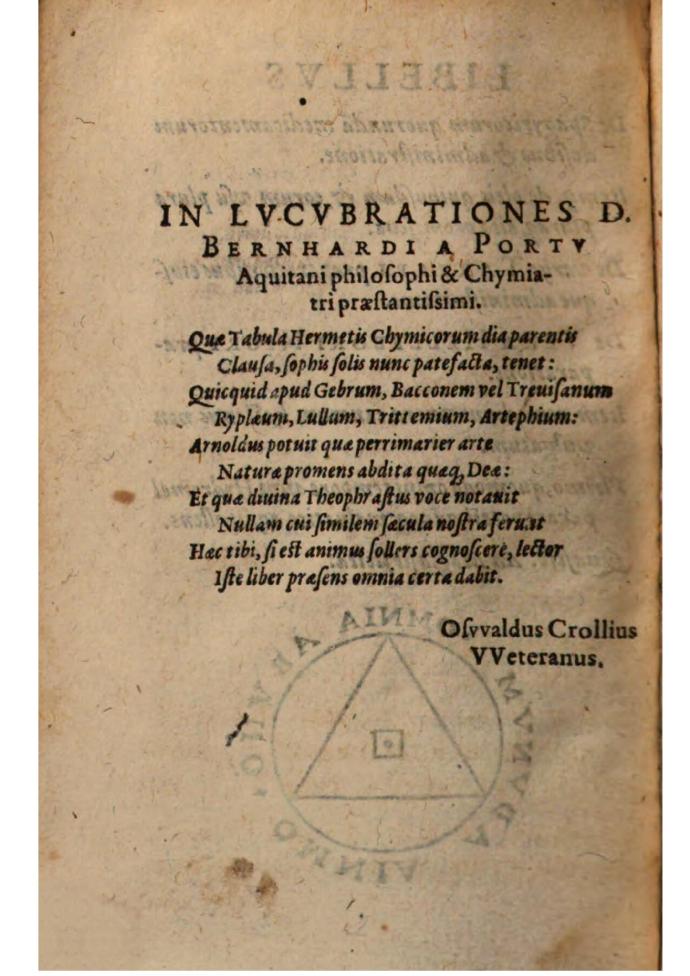 IN LVCVBRATIONES D.
BERNHARDI A PORTV
Aquitani philoſophi & Chymia-
tri præſtantiſsimi.
Quæ Tabula Hermetis Chymicorum dia parentis
Clauſa, ſophis ſolis nunc patefacta, tenet:
Quicquid apud Gebrum, Bacconem vel Treuiſanum
Ryplæum, Lullum, Trittemium, Artephium:
Arnoldus potuit quæ perrimarier arte
Naturæ promens abdita quæq; Deæ:
Et quæ diuina Theophraſtus voce notauit
Nullam cui ſimilem ſæcula noſtra ferunt
Hæc tibi, ſi eſt animus ſollers cognoſcere, lector
Iſte liber præſens omnia certa dabit.
Oſvvaldus Crollius
VVeteranus.